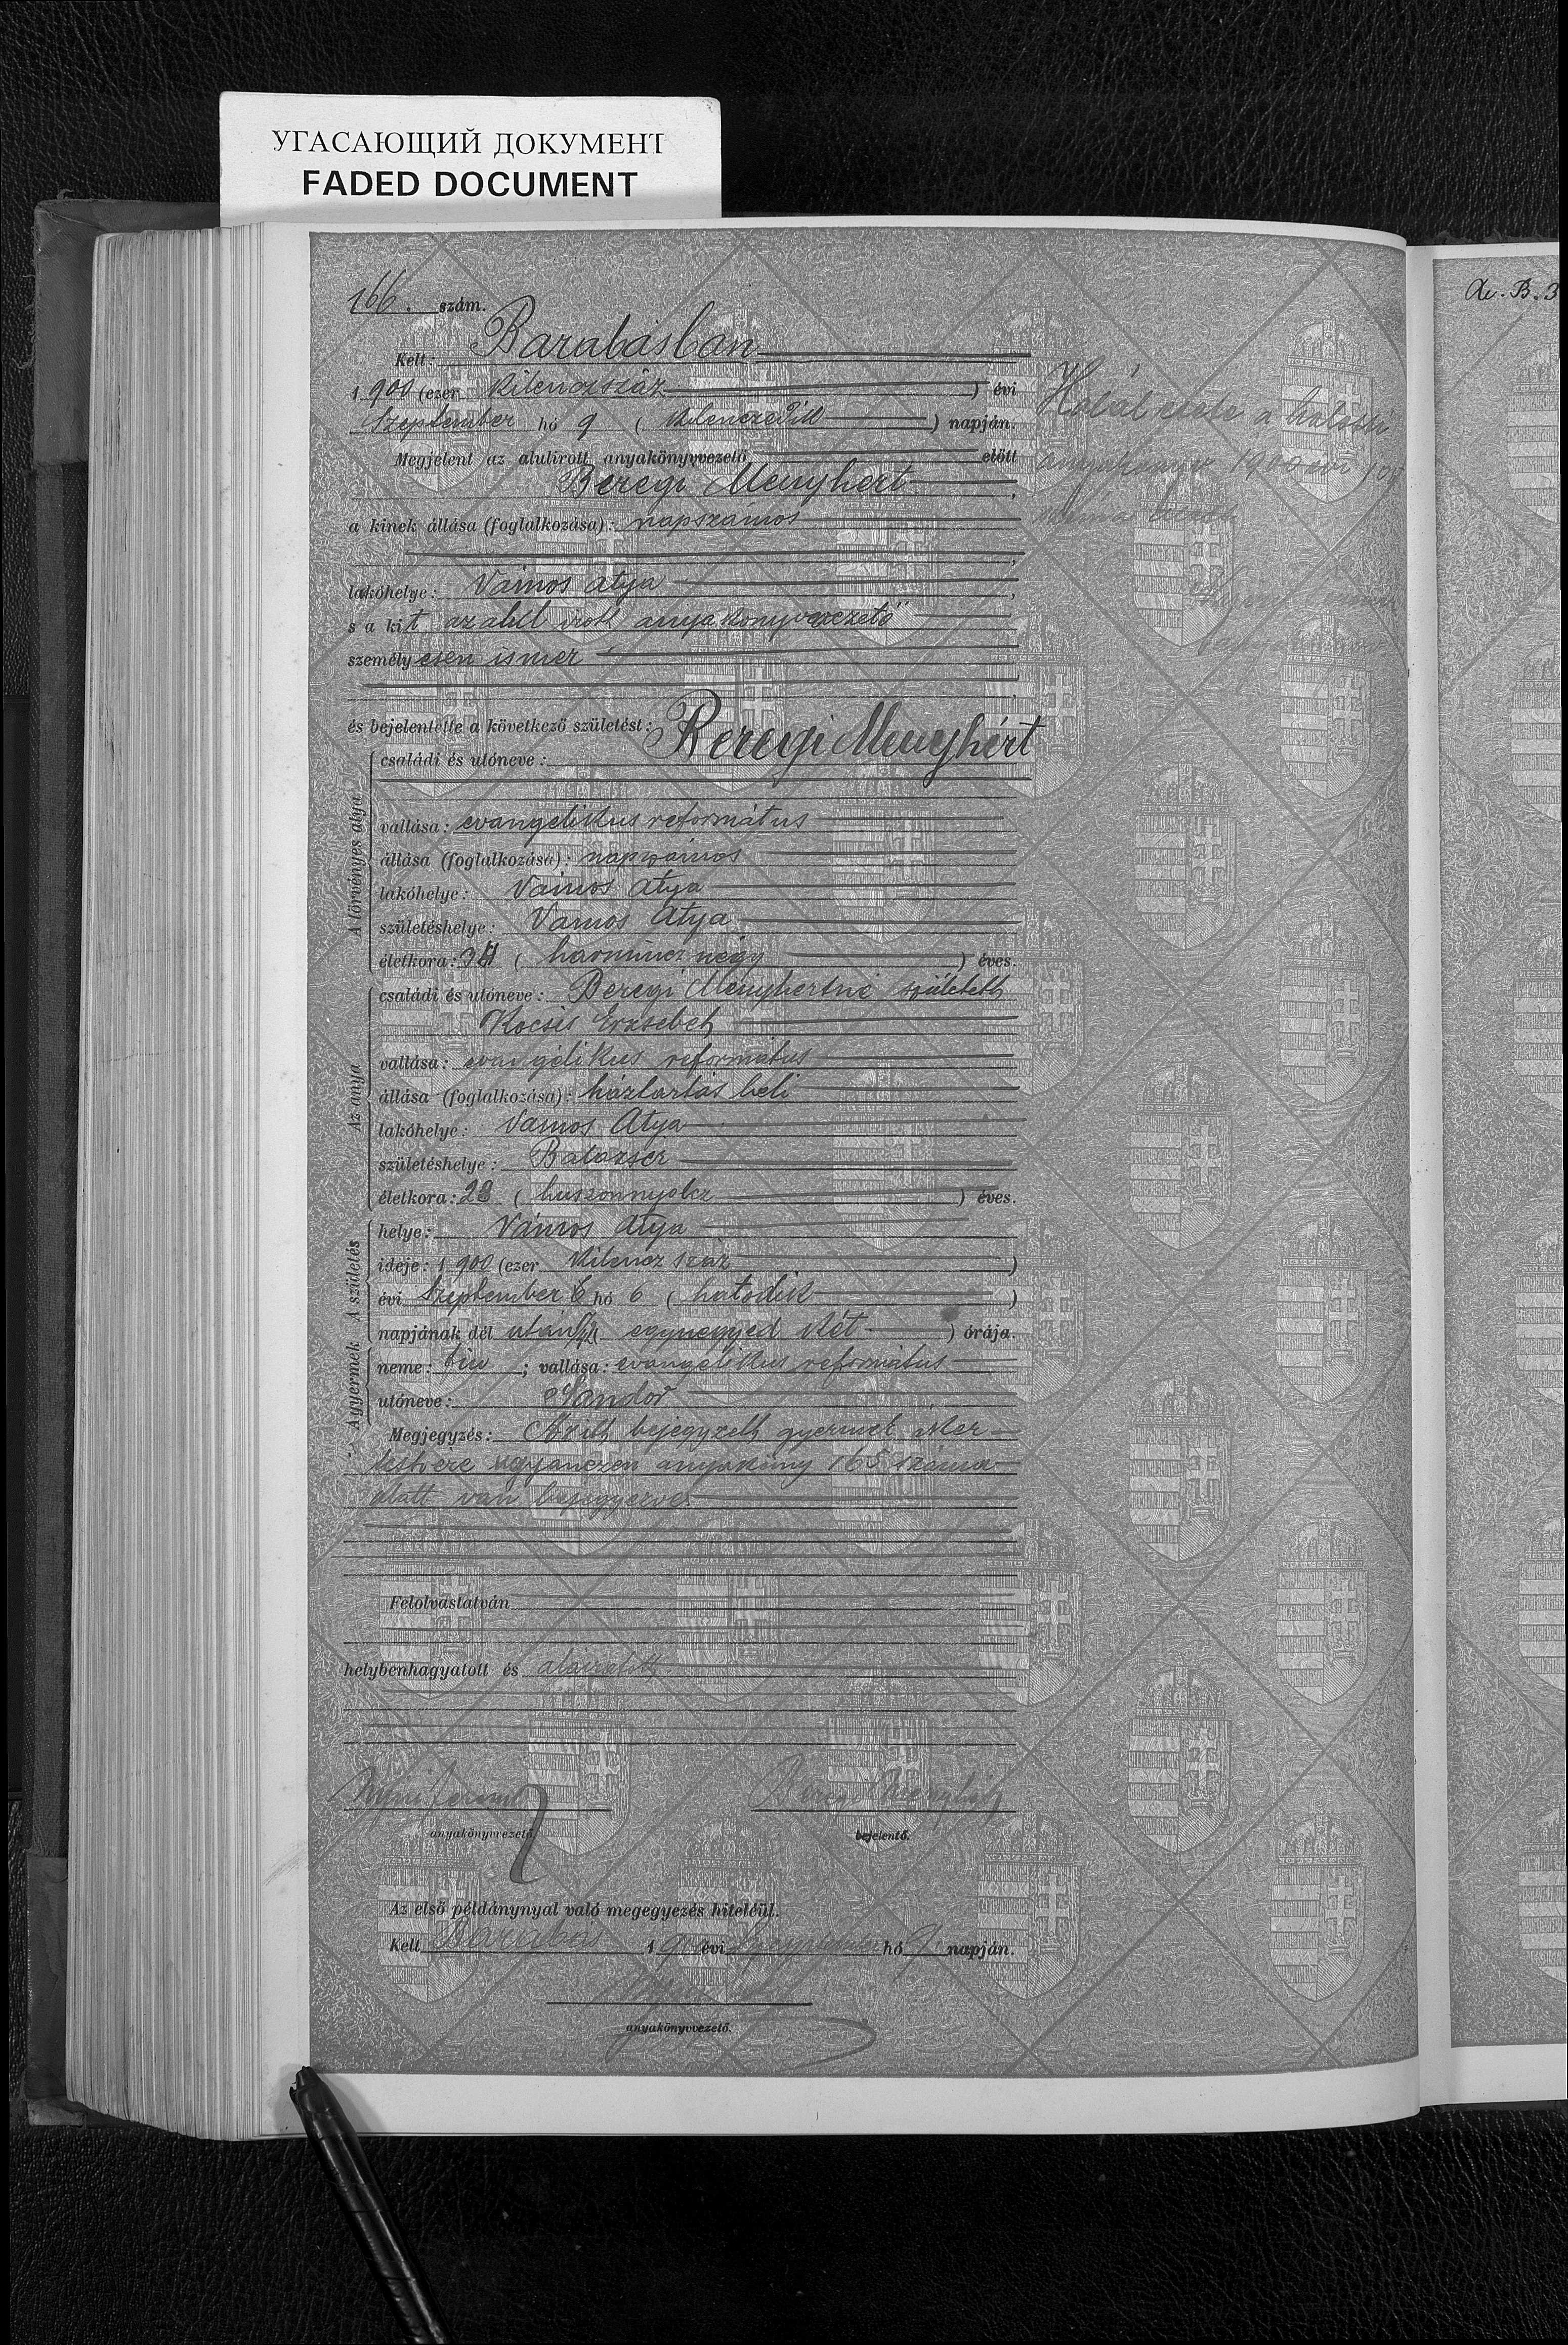 УГАСАЮЩИЙ ДОКУМЕНТ
FADED DOCUMENT
166. szám.
Kelt: Barabásban
1 900 (ezer kilenczszáz ) évi
Szeptember hó 9 ( kilenczedik ) napján.
Megjelent az alulirott anyakönyvvezető előtt
Beregi Menyhért ,
a kinek állása (foglalkozása): napszámos
,
lakóhelye: Vámos Atya ,
s a kit az alul irott anyakönyvvezető
személyesen ismer ,
,
és bejelentette a következő születést:
A törvényes atya
családi és utóneve: Beregi Menyhért
vallása: evangelikus református
állása (foglalkozása): napszámos
lakóhelye: Vámos Atya
születéshelye: Vámos Atya
életkora: 34 ( harmincz négy ) éves.
Az anya
családi és utóneve: Beregi Menyhértné született
Kocsis Erzsébet
vallása: evangélikus református
állása (foglalkozása): háztartás beli
lakóhelye: Vámos Atya
születéshelye: Balazsér
életkora: 28 ( huszonnyolcz ) éves.
A születés
helye: Vámos Atya
ideje: 1 900 (ezer kilencz száz )
évi Szeptember hó 6 ( hatodik )
napjának dél után egynegyed két ) órája.
A gyermek
neme: fiu ; vallása: evangelikus református
utóneve: Sándor
Megjegyzés: bejegyzett gyermek iker
testvére ugyanezen anyakönyv 165 száma
alatt van bejegyezve.
Felolvastatván
helybenhagyatott és aláiratott
anyakönyvvezető.
Beregi Menyhért
bejelentő.
Az első példánynyal való megegyezés hiteléül.
Kelt Barabás 1 900 évi Szeptember hó 9. napján.
anyakönyvvezető.
Halál esete a halotti
anyakönyv 1900 évi